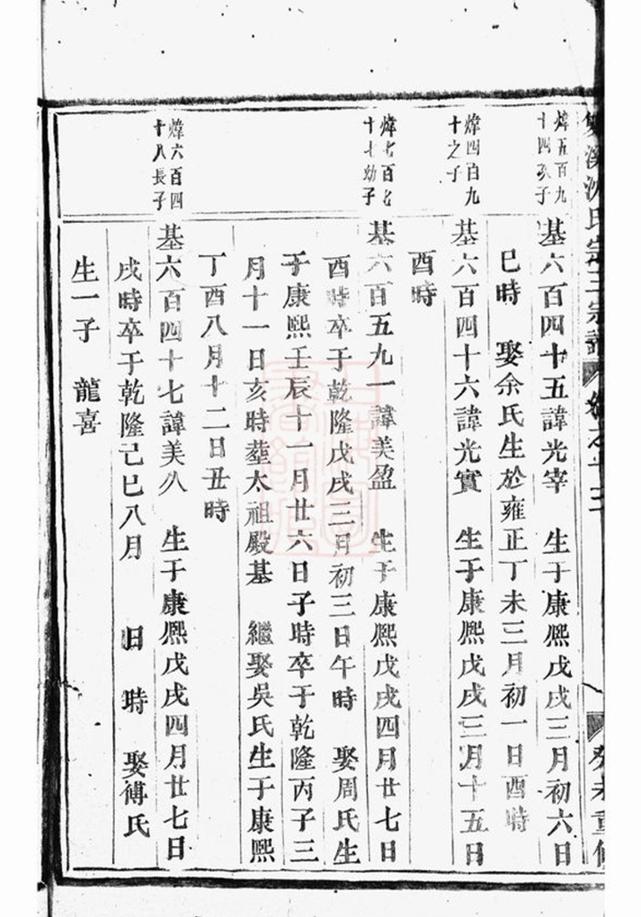 煒五百九
十四次子
基六百四十五諱光宰 生于康熙戊戌三月初六日
巳時 娶余氏生於雍正丁未三月初一日酉時
煒四百九
十之子
基六百四十六諱光實 生于康熙戊戌三月十五日
酉時
煒七百
十七幼子
基六百五九一諱美盈 生于康熙戊戌四月廿七日
酉時卒于乾隆戊戌三月初三日午時 娶周氏生
于康熙壬辰十一月廿六日子時卒于乾隆丙子三
月十一日亥時葬太祖殿基 繼娶吳氏生于康熙
丁酉八月十二日丑時
煒六百四
十八長子
基六百四十七諱美久 生于康熙戊戌四月廿七日
戌時卒于乾隆己巳八月 日 時 娶傅氏
生一子 龍喜